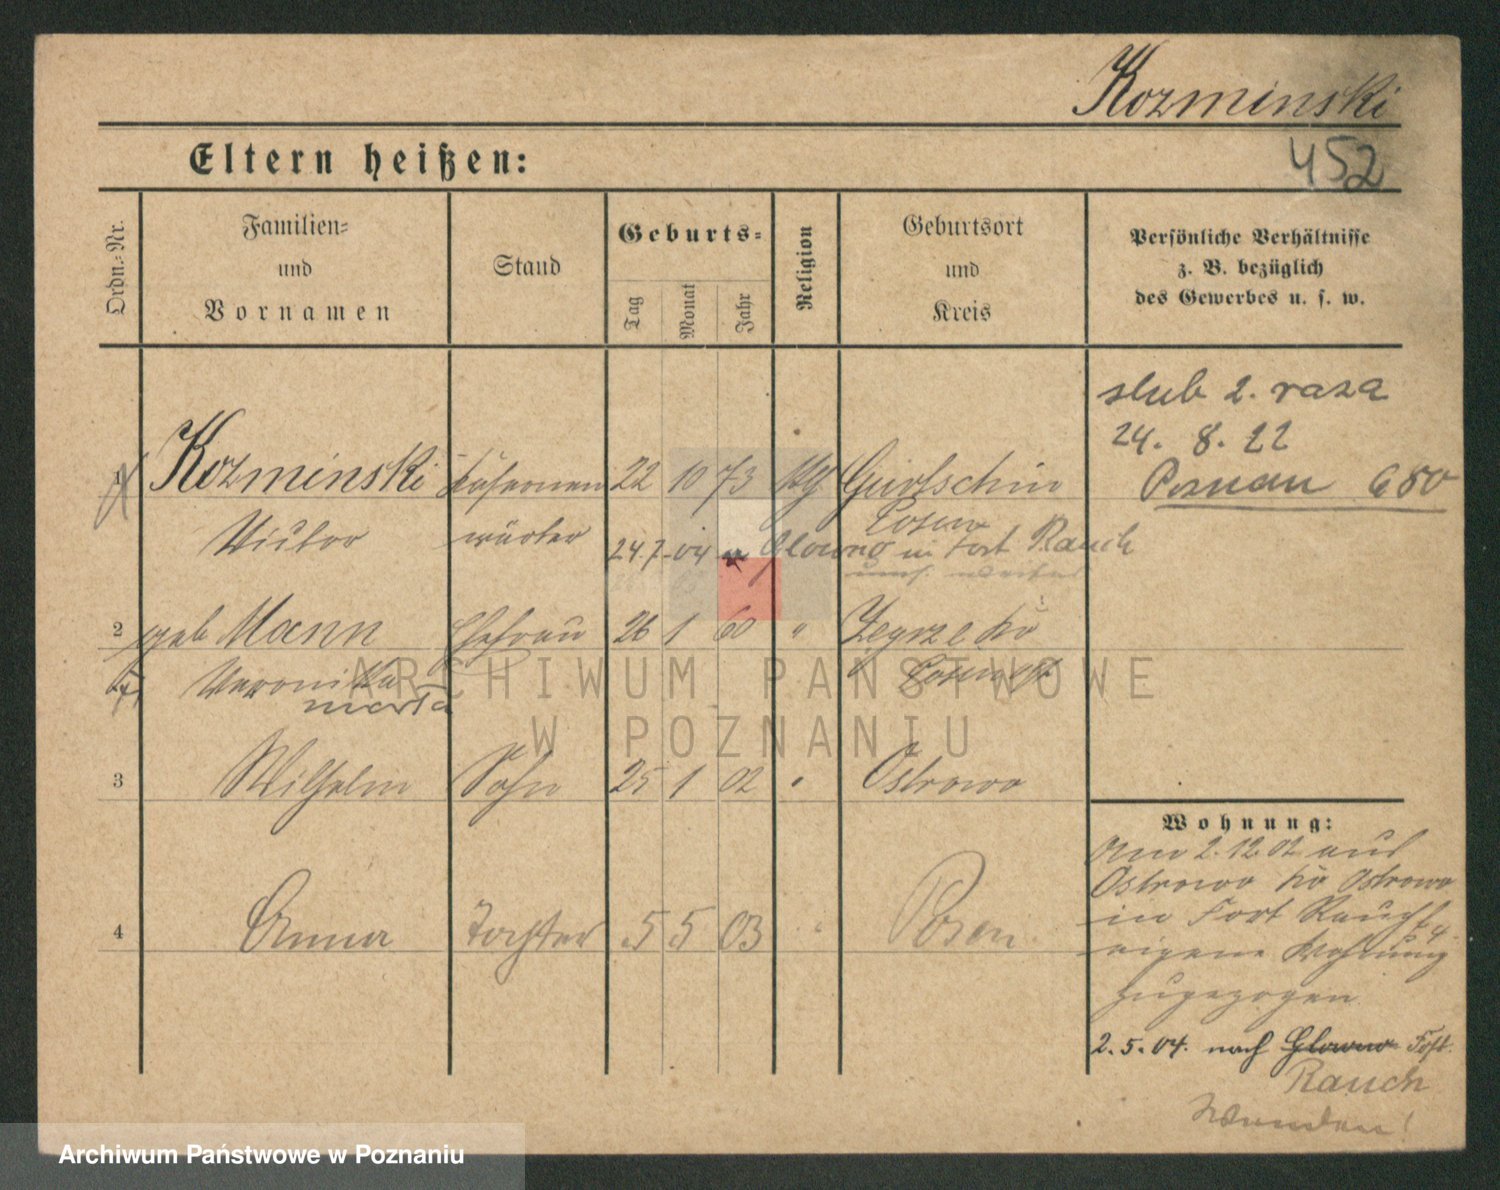 Kozminski
452
Eltern heißen:
Ordn.-Nr.
Familien-
und
Vornamen
Stand
Geburts-
Tag
Monat
Jahr
Religion
Geburtsort
und
Kreis
Persönliche Verhältnisse
z. B. bezüglich
des Gewerbes u. s. w.
slub 2. raza
24. 8. 22
Poznań 680
1 Kozminski Kasernen 22 10 73 Gurtschin
Victor wärter Posen
24.7.04 Glowno in Fort Rauch
2 geb Mann Ehefrau 26 1 60 "
Veronika
marta
3 Wilhelm Sohn 25 1 02 " Ostrowo
4 Anna Tochter 5 5 03 " Posen
Wohnung:
Am 2.12.02 aus
Ostrowo Ostrowo
in Fort Rauch
eigene Wohnung
zugezogen
2.5.04. nach Glowno Fort
Rauch
Wenden!
ARCHIWUM PAŃSTWOWE
W POZNANIU
Archiwum Państwowe w Poznaniu